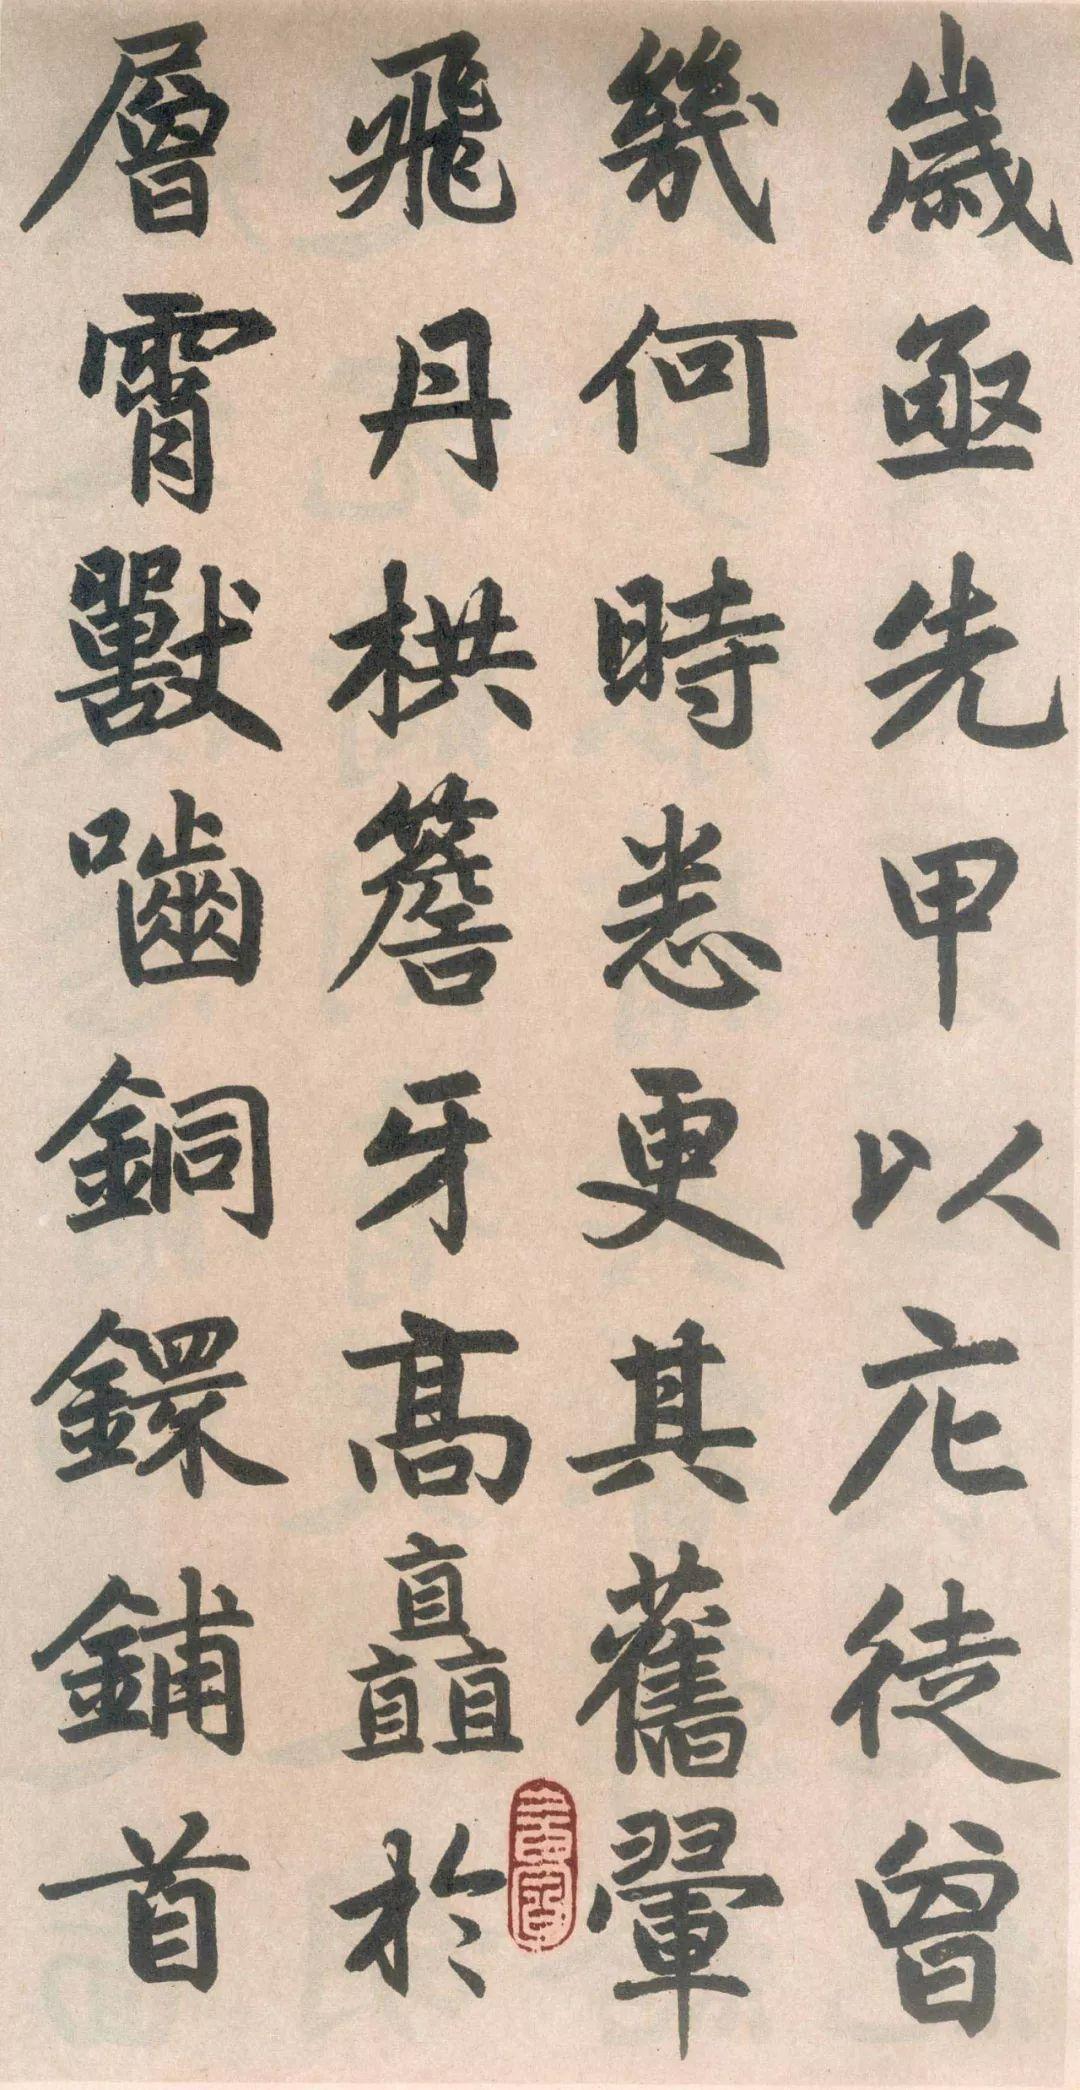 歲亟先甲以庀徒曾
幾何時悉更其舊翬
飛丹栱簷牙高矗於
層霄獸嚙銅鐶鋪首